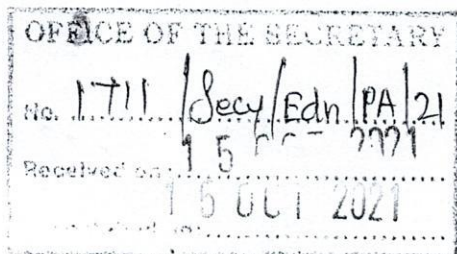 OFFICE OF THE SECRETARY
No. 1711/Secy/Edn/PA/21
Received on 15 2021
15 OCT 2021